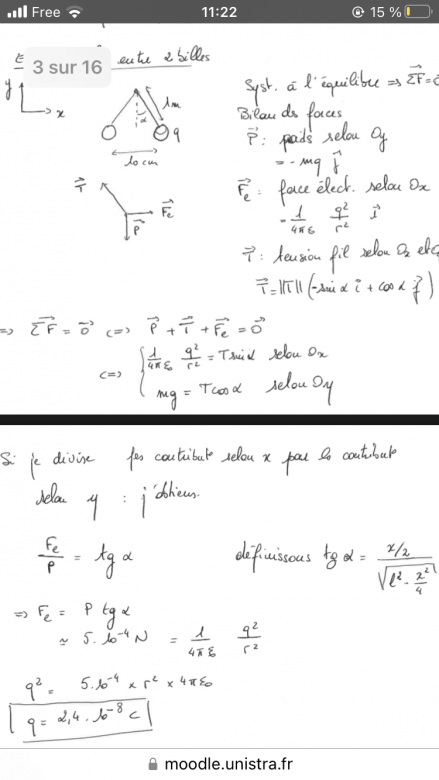 Free 11:22 15 %
3 sur 16
entre 2 billes
y
x
1m
α
q
10 cm
Syst. à l'équilibre => ΣF =
Bilan des forces
P : poids selon Oy
= - mg j
Fe : force élect. selon Ox
= 1/4πε q²/r² i
T : tension fil selon Ox et
T = ||T|| (-sin α i + cos α j)
T Fe
P
=> ΣF = 0 <=> P + T + Fe = 0
<=> { 1/4πε₀ q²/r² = T sin α selon Ox
mg = T cos α selon Oy
Si je divise les contribut selon x par la contribut
selon y : j'obtiens.
Fe/P = tg α définissons tg α = x/2 / √(l² - x²/4)
=> Fe = P tg α
≈ 5.10⁻⁴ N = 1/4πε₀ q²/r²
q² = 5.10⁻⁴ x r² x 4πε₀
q = 2,4.10⁻⁸ C
moodle.unistra.fr